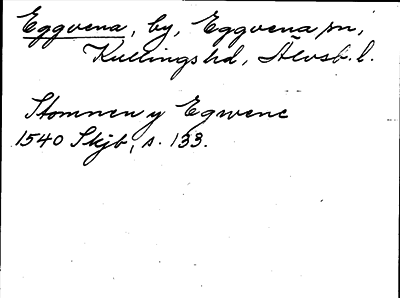 Eggvena, by, Eggvena sn,
Kullings hd, Älvsb. l.
Stomnen y Egwene
1540 Skjb, s. 133.